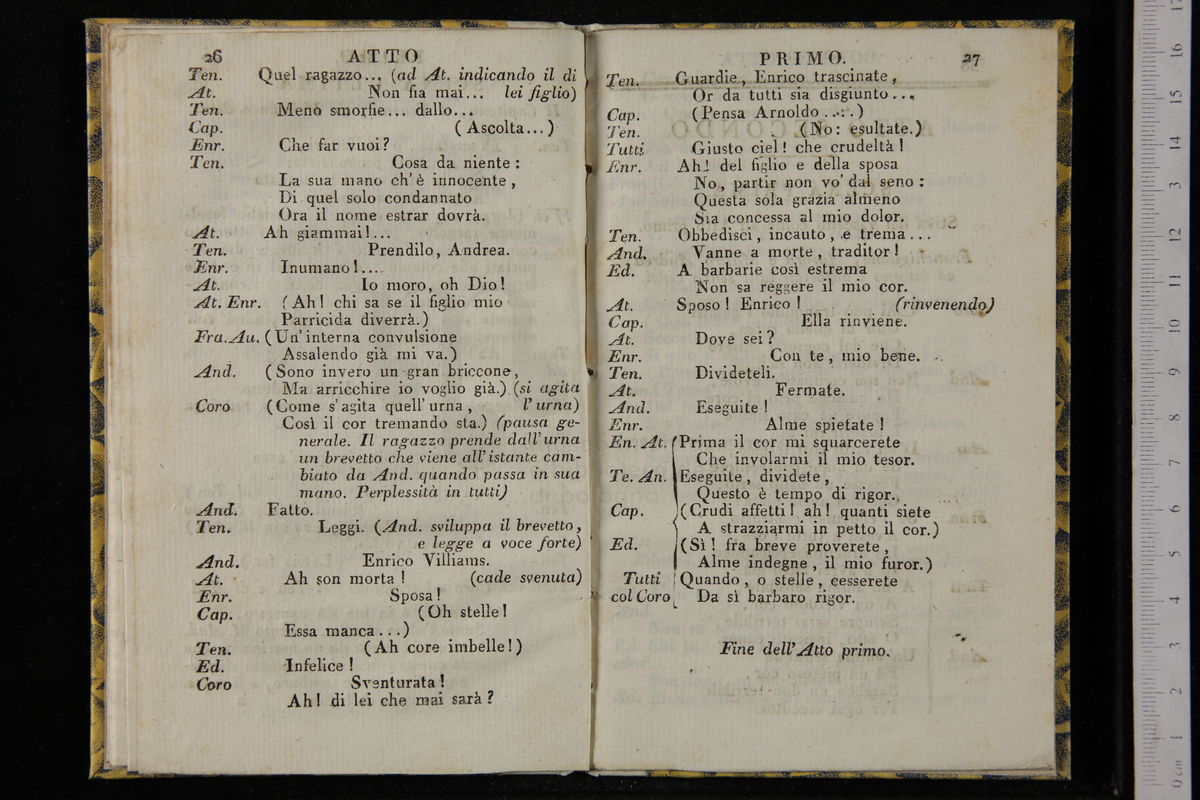 26 ATTO
Ten. Quel ragazzo... (ad At. indicando il di
At. Non fia mai... lei figlio)
Ten. Meno smorfie... dallo...
Cap. (Ascolta...)
Enr. Che far vuoi?
Ten. Cosa da niente:
La sua mano ch'è innocente,
Di quel solo condannato
Ora il nome estrar dovrà.
At. Ah giammai!...
Ten. Prendilo, Andrea.
Enr. Inumano!...
At. Io moro, oh Dio!
At. Enr. (Ah! chi sa se il figlio mio
Parricida diverrà.)
Fra. Au. (Un'interna convulsione
Assalendo già mi va.)
And. (Sono invero un gran briccone,
Ma arricchire io voglio già.) (si agita
Coro (Come s'agita quell'urna, l'urna)
Così il cor tremando sta.) (pausa ge-
nerale. Il ragazzo prende dall'urna
un brevetto che viene all'istante cam-
biato da And. quando passa in sua
mano. Perplessità in tutti)
And. Fatto.
Ten. Leggi. (And. sviluppa il brevetto,
e legge a voce forte)
And. Enrico Villiams.
At. Ah son morta! (cade svenuta)
Enr. Sposa!
Cap. (Oh stelle!
Essa manca...)
Ten. (Ah core imbelle!)
Ed. Infelice!
Coro Sventurata!
Ah! di lei che mai sarà?
PRIMO. 27
Ten. Guardie, Enrico trascinate,
Or da tutti sia disgiunto...
Cap. (Pensa Arnoldo...)
Ten. (No: esultate.)
Tutti Giusto ciel! che crudeltà!
Enr. Ah! del figlio e della sposa
No, partir non vo' dal seno:
Questa sola grazia almeno
Sia concessa al mio dolor.
Ten. Obbedisci, incauto, e trema...
And. Vanne a morte, traditor!
Ed. A barbarie così estrema
Non sa reggere il mio cor.
At. Sposo! Enrico! (rinvenendo)
Cap. Ella rinviene.
At. Dove sei?
Enr. Con te, mio bene.
Ten. Divideteli.
At. Fermate.
And. Eseguite!
Enr. Alme spietate!
En. At. Prima il cor mi squarcerete
Che involarmi il mio tesor.
Te. An. Eseguite, dividete,
Questo è tempo di rigor.
Cap. (Crudi affetti! ah! quanti siete
A strazziarmi in petto il cor.)
Ed. (Sì! fra breve proverete,
Alme indegne, il mio furor.)
Tutti Quando, o stelle, cesserete
col Coro Da sì barbaro rigor.
Fine dell'Atto primo.